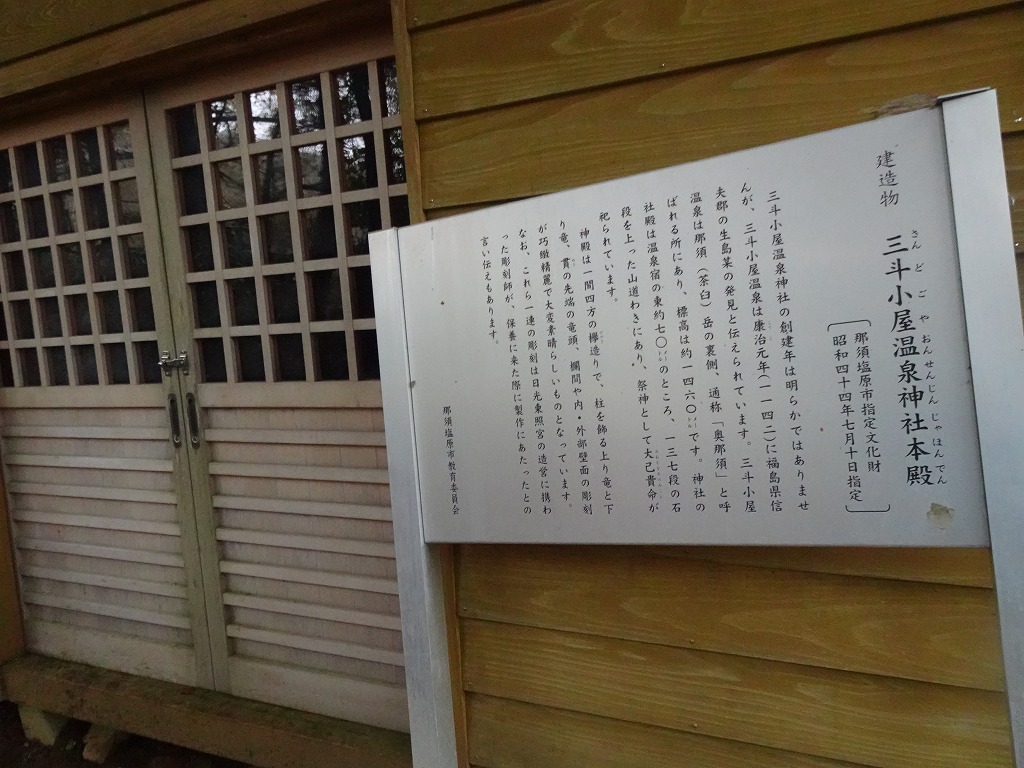 建造物 三斗小屋温泉神社本殿
さんどごやおんせんじんじゃほんでん
那須塩原市指定文化財
昭和四十四年七月十日指定
三斗小屋温泉神社の創建年は明らかではありませ
んが、三斗小屋温泉は康治元年(一一四二)に福島県信
夫郡の生島某の発見と伝えられています。三斗小屋
温泉は那須(茶臼)岳の裏側、通称「奥那須」と呼
ばれる所にあり、標高は約一四六〇メートルです。神社の
社殿は温泉宿の東約七〇メートルのところ、一三七段の石
段を上った山道わきにあり、祭神として大己貴命が
祀られています。
神殿は一間四方の欅造りで、柱を飾る上り竜と下
り竜、貫の先端の竜頭、欄間や内・外部壁面の彫刻
が巧緻精麗で大変素晴らしいものとなっています。
なお、これら一連の彫刻は日光東照宮の造営に携わ
った彫刻師が、保養に来た際に製作にあたったとの
言い伝えもあります。
那須塩原市教育委員会